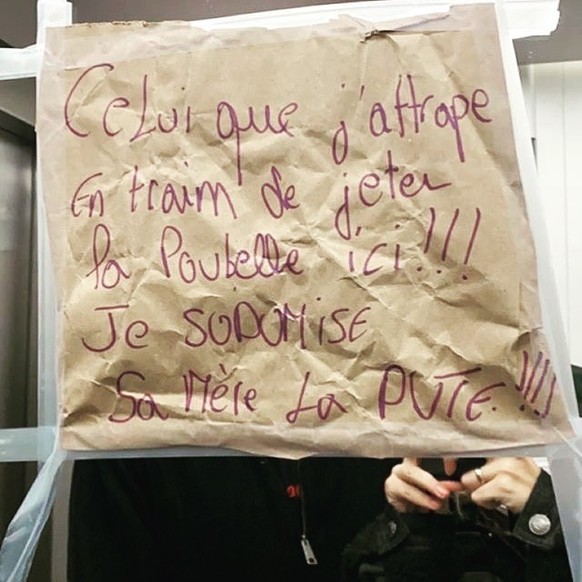 Celui que j'attrape
En traim de jeter
la Poubelle ici!!!
Je SODOMiSE
Sa Mère La PUTE!!!!